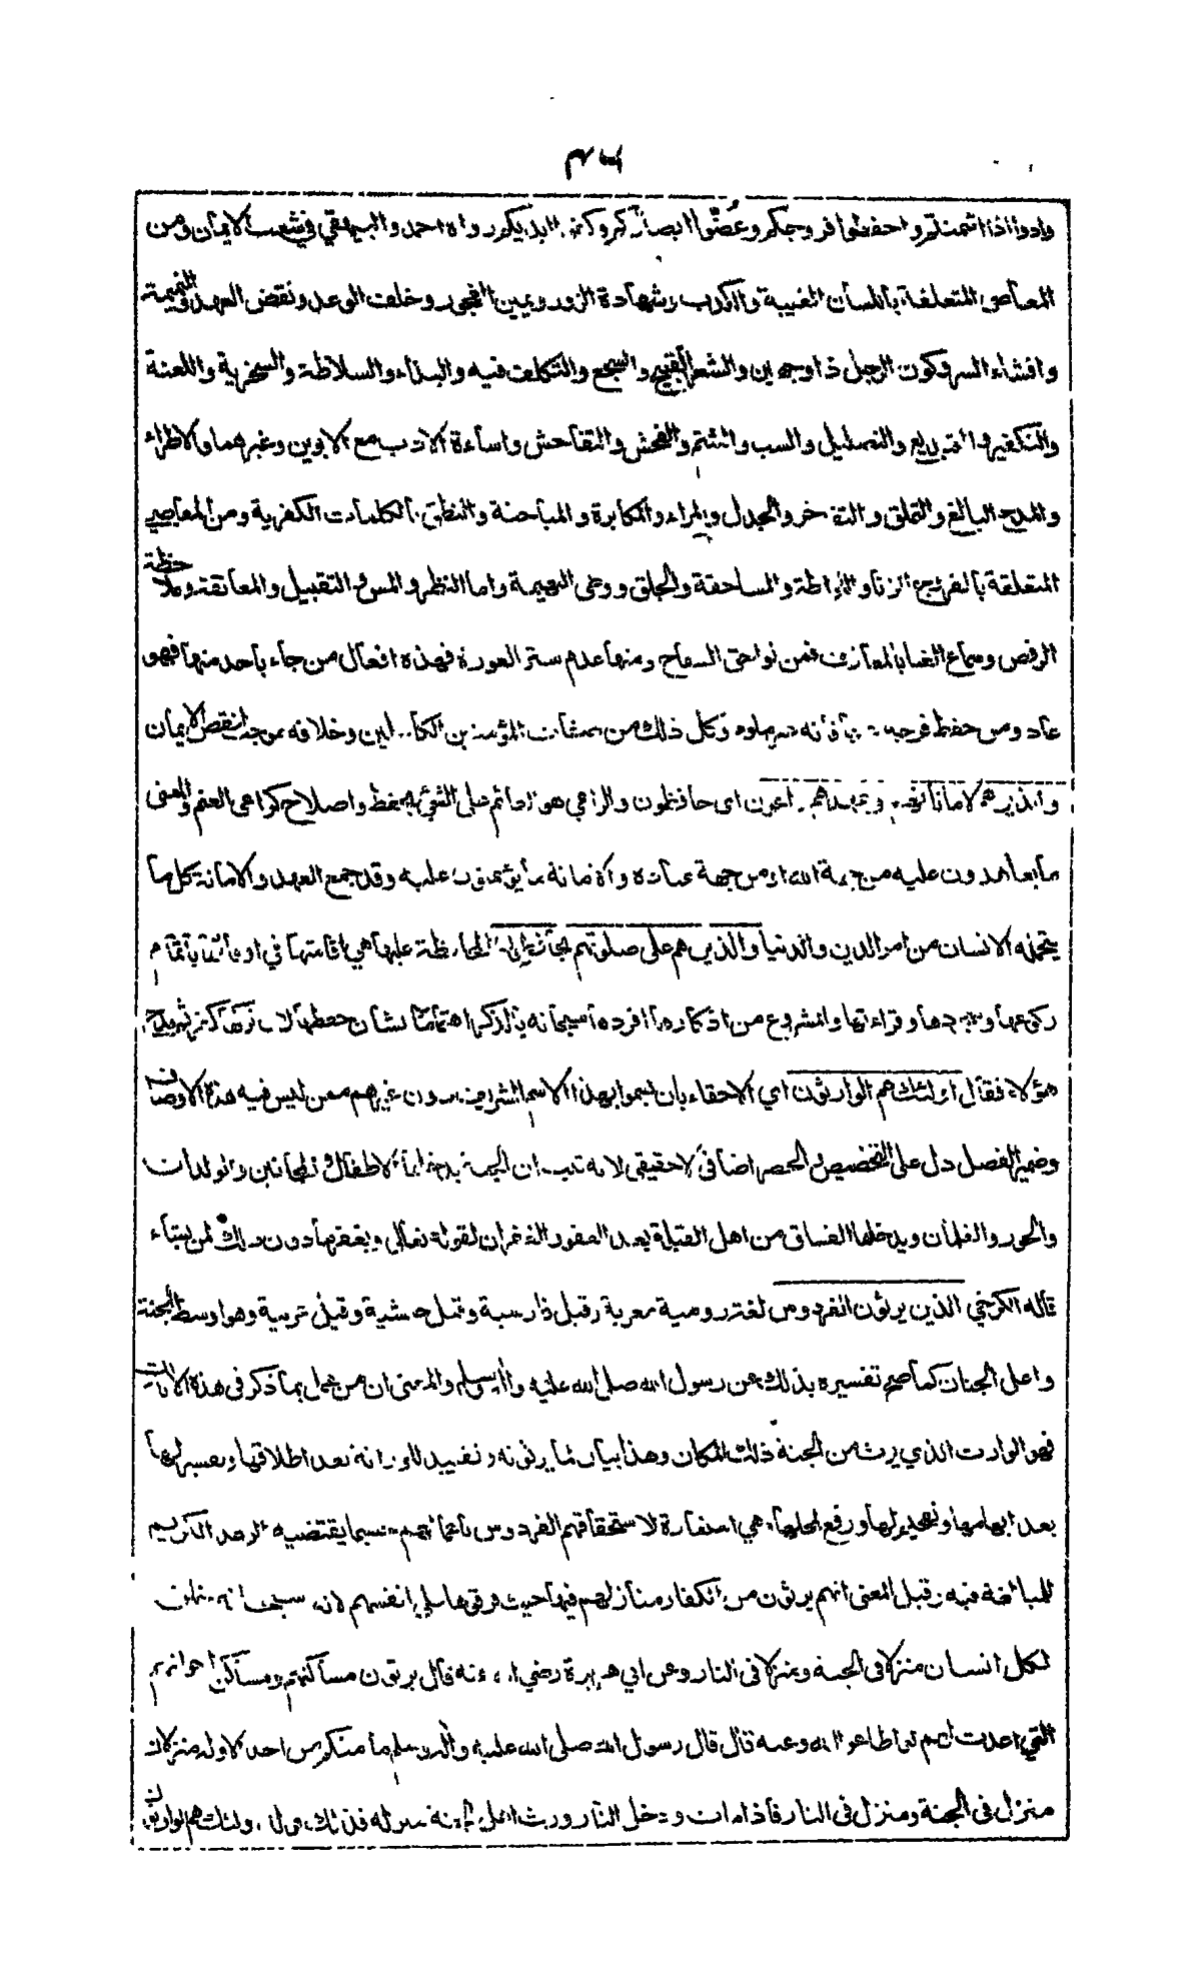 ٣٦
وادوا اذا ائتمنتم واحفظوا فروجكم وغضوا ابصاركم وكفوا ايديكم رواه احمد والبيهقي في شعب الايمان ومن
المعاصي المتعلقة باللسان الغيبة والكذب وشهادة الزور ويمين الفجور وخلف الوعد ونقض العهد والنميمة
وافشاء السر وكون الرجل ذا وجهين والشعر القبيح والسجع والتكلف فيه والبذاء والسلاطة والسخرية واللعنة
والتكفير والتبديع والتضليل والسب والشتم والفحش والتفاحش واساءة الادب مع الابوين وغيرهما والاطراء
والمدح البالغ والتملق والتفاخر والجدل والمراء والمكابرة والمباحثة والنطق بالكلمات الكفرية ومن المعاصي
المتعلقة بالفرج الزنا واللواطة والمساحقة والجلق ووطى البهيمة واما النظر والمس والتقبيل والمعانقة وملاحظة
الرقص وسماع الغنا بالمعازف فمن لواحق السفاح ومنها عدم ستر العورة فهذه افعال من جاء باحد منها فهو
عاد ومن حفظ فرجه وكل ذلك من صفات المؤمنين الكاملين وخلافه موجب لنقص الايمان
والذين هم لاماناتهم وعهدهم راعون اى حافظون والراعي هو القائم على الشيء بحفظ واصلاح كراعى الغنم والمعنى
ما يعاهدون عليه من جهة الله او من جهة عباده والامانة ما يؤتمنون عليه وقد جمع العهد والامانة كل ما
يتحمله الانسان من امر الدين والدنيا والذين هم على صلوتهم يحافظون المحافظة عليها هي اقامتها في اوقاتها باتمام
ركوعها وسجودها وقراءتها والمشروع من اذكارها افردها سبحانه بالذكر اهتماما بشان حفظها ثم مدح
هؤلاء فقال اولئك هم الوارثون اي الاحقاء بان يسموا بهذا الاسم الشريف دون غيرهم ممن ليس فيه هذه الاوصاف
وضمير الفصل دل على التخصيص والحصر اضافي لا حقيقي لانه ثبت ان الجنة يدخلها الاطفال والمجانين والولدان
والحور والغلمان ويدخلها الفساق من اهل القبلة بعد العفو والغفران لقوله تعالى ويغفر ما دون ذلك لمن يشاء
قاله الكرخي الذين يرثون الفردوس لغة رومية معربة وقيل فارسية وقيل حبشية وقيل عربية وهو اوسط الجنة
واعلى الجنان كما صح تفسيره بذلك عن رسول الله صلى الله عليه واله وسلم والمعنى ان من عمل بما ذكر في هذه الايات
فهو الوارث الذي يرث من الجنة ذلك المكان وهذا بيان لما يرثونه وتقييد للوراثة بعد اطلاقها وتفسير لها
بعد ابهامها وتفخيم لها ورفع لمحلها وهي استعارة لاستحقاقهم الفردوس باعمالهم حسبما يقتضيه الوعد الكريم
للمبالغة فيه وقيل المعنى انهم يرثون من الكفار منازلهم فيها حيث فوتوها على انفسهم لانه سبحانه خلق
لكل انسان منزلا فى الجنة ومنزلا فى النار وعن ابي هريرة رضي الله عنه قال يرثون مساكنهم ومساكن اخوانهم
التي اعدت لهم لو اطاعوا الله وعنه قال قال رسول الله صلى الله عليه واله وسلم ما منكم من احد الا وله منزلان
منزل فى الجنة ومنزل فى النار فاذا مات ودخل النار ورث اهل الجنة منزله فذلك قوله اولئك هم الوارثون